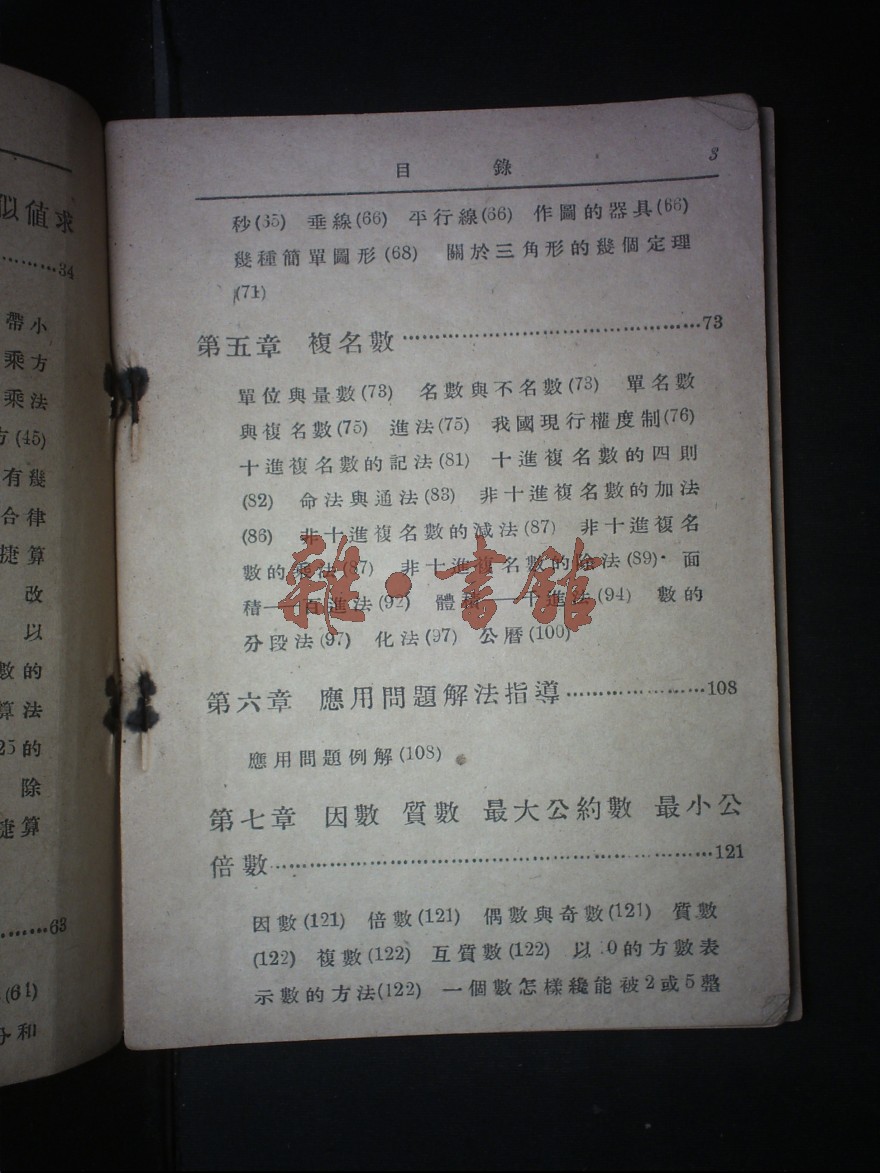 似値求
34
帶小
乘方
乘法
方(45)
有幾
合律
捷算
改
以
數的
算法
25的
除
捷算
63
(61)
和
目 錄 3
秒(65) 垂線(66) 平行線(66) 作圖的器具(66)
幾種簡單圖形(68) 關於三角形的幾個定理
(71)
第五章 複名數……………………………………73
單位與量數(73) 名數與不名數(73) 單名數
與複名數(75) 進法(75) 我國現行權度制(76)
十進複名數的記法(81) 十進複名數的四則
(82) 命法與通法(83) 非十進複名數的加法
(86) 非十進複名數的減法(87) 非十進複名
數的乘法(87) 非十進複名數的除法(89) 面
積——百進法(92) 體積——千進法(94) 數的
分段法(97) 化法(97) 公曆(100)
雜·書館
第六章 應用問題解法指導…………………108
應用問題例解(108)
第七章 因數 質數 最大公約數 最小公
倍數……………………………………………………121
因數(121) 倍數(121) 偶數與奇數(121) 質數
(122) 複數(122) 互質數(122) 以10的方數表
示數的方法(122) 一個數怎樣纔能被2或5整